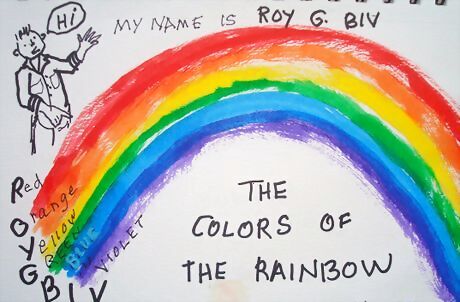 Hi
MY NAME IS ROY G. BIV
Red
Orange
YELLOW
GREEN
BLUE
I
VIOLET
THE
COLORS OF
THE RAINBOW